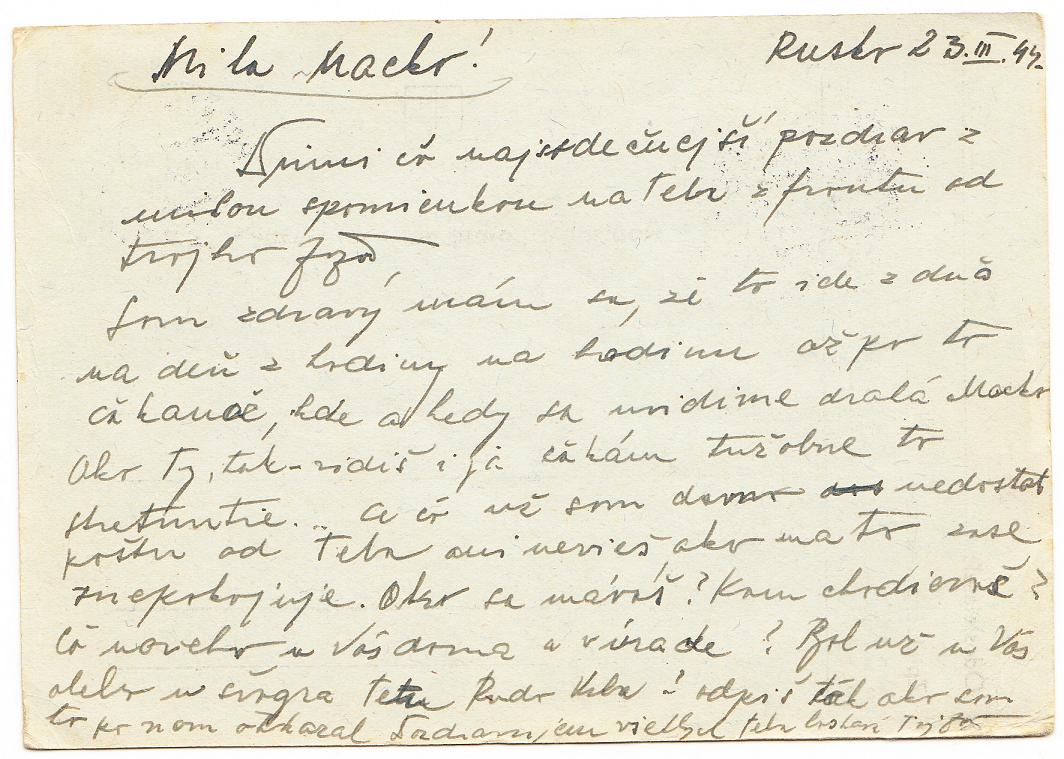 Milá Macko!
Rusko 23.III.44.
Primi čo najsrdečnejší pozdrav z
milou spomienkou na Teba z frontu od
tvojho Jož
Som zdravý mám sa, že to ide z dňa
na deň z hodiny na hodinu až po to
čakanie, kde a kedy sa uvidíme drahá Macko
Ako Ty, tak vidíš i ja čakám túžobne to
stretnutie... A čo už som davno nedostal
poštu od Teba ani nevieš ako ma to zase
znepokojuje. Ako sa mávaš? Kam chodievaš?
Čo noveho u Vás doma a v úrade? Bol už u Vás
alebo u švagra Rudo ! odpíš tak ako som
to po nom odkazal Pozdravujem všetkých Teba